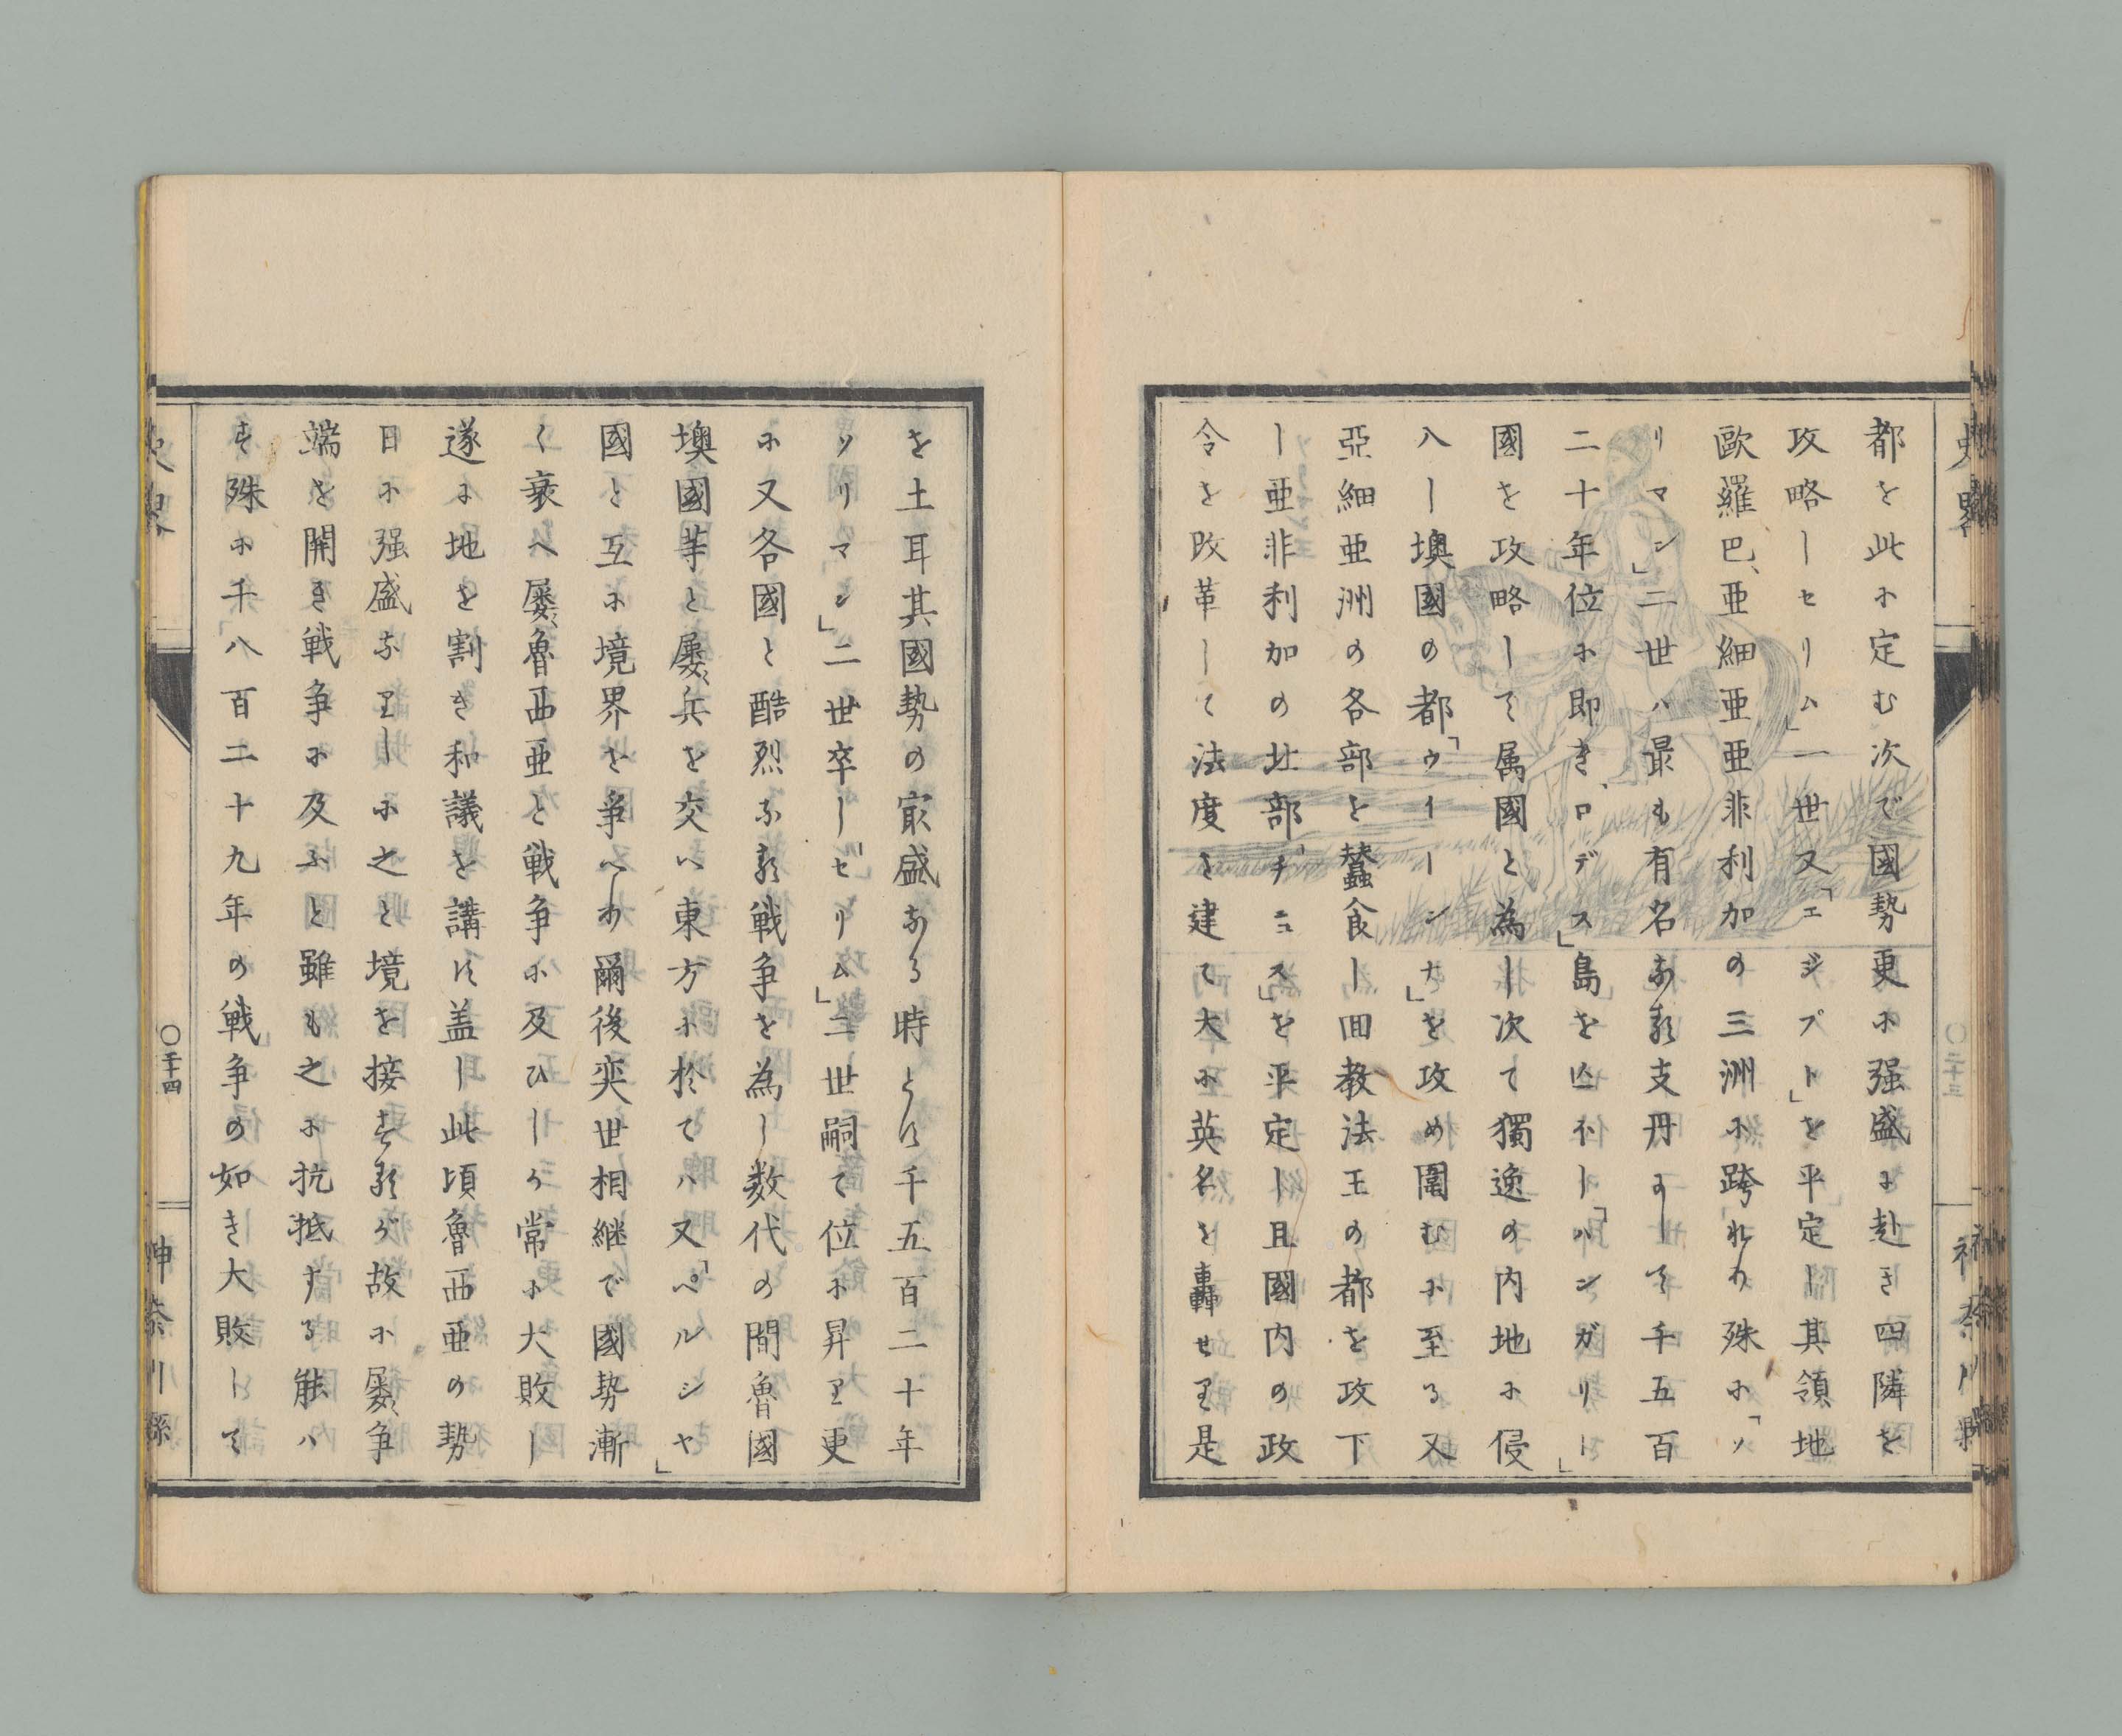 都を此に定む次で國勢更に强盛に赴き四隣を
攻略しセリム」一世又「エジプト」を平定し其領地
歐羅巴、亜細亜亜非利加の三洲に跨れり殊に「ソ
リマン」二世ハ最も有名なる支丹にして千五百
二十年位に即き、ロデス」島を圧ねし「ハンガリー」
國を攻略して属國と為し次て獨逸の内地に侵
入し墺國の都「ウイーンナ」を攻め圍むに至る又
亞細亜洲の各部と蠶食し囬教法王の都を攻下
し亜非利加の北部「チユニス」を平定し且國内の政
令を改革して法度を建て大に英名を轟せり是
を土耳其國勢の㝡盛なる時とす千五百二十年
ソリマン」二世卒し「セリム」二世嗣て位に昇り更
に又各國と酷烈なる戦争を為し数代の間魯國
墺國等と屡〻兵を交へ東方に於てハ又「ペルシヤ」
國と互に境界を争へり爾後奕世相継で國勢漸
く衰へ屡〻魯西亜と戦争に及ひしが常に大敗し
遂に地を割き和議を講す盖し此頃魯西亜の勢
日に强盛なりしに之と境を接するが故に屡〻争
端を開き戦争に及ふと雖も之に抗抵する能ハ
す殊に千八百二十九年の戦争の如き大敗して
史略
〇二十四
神奈川縣